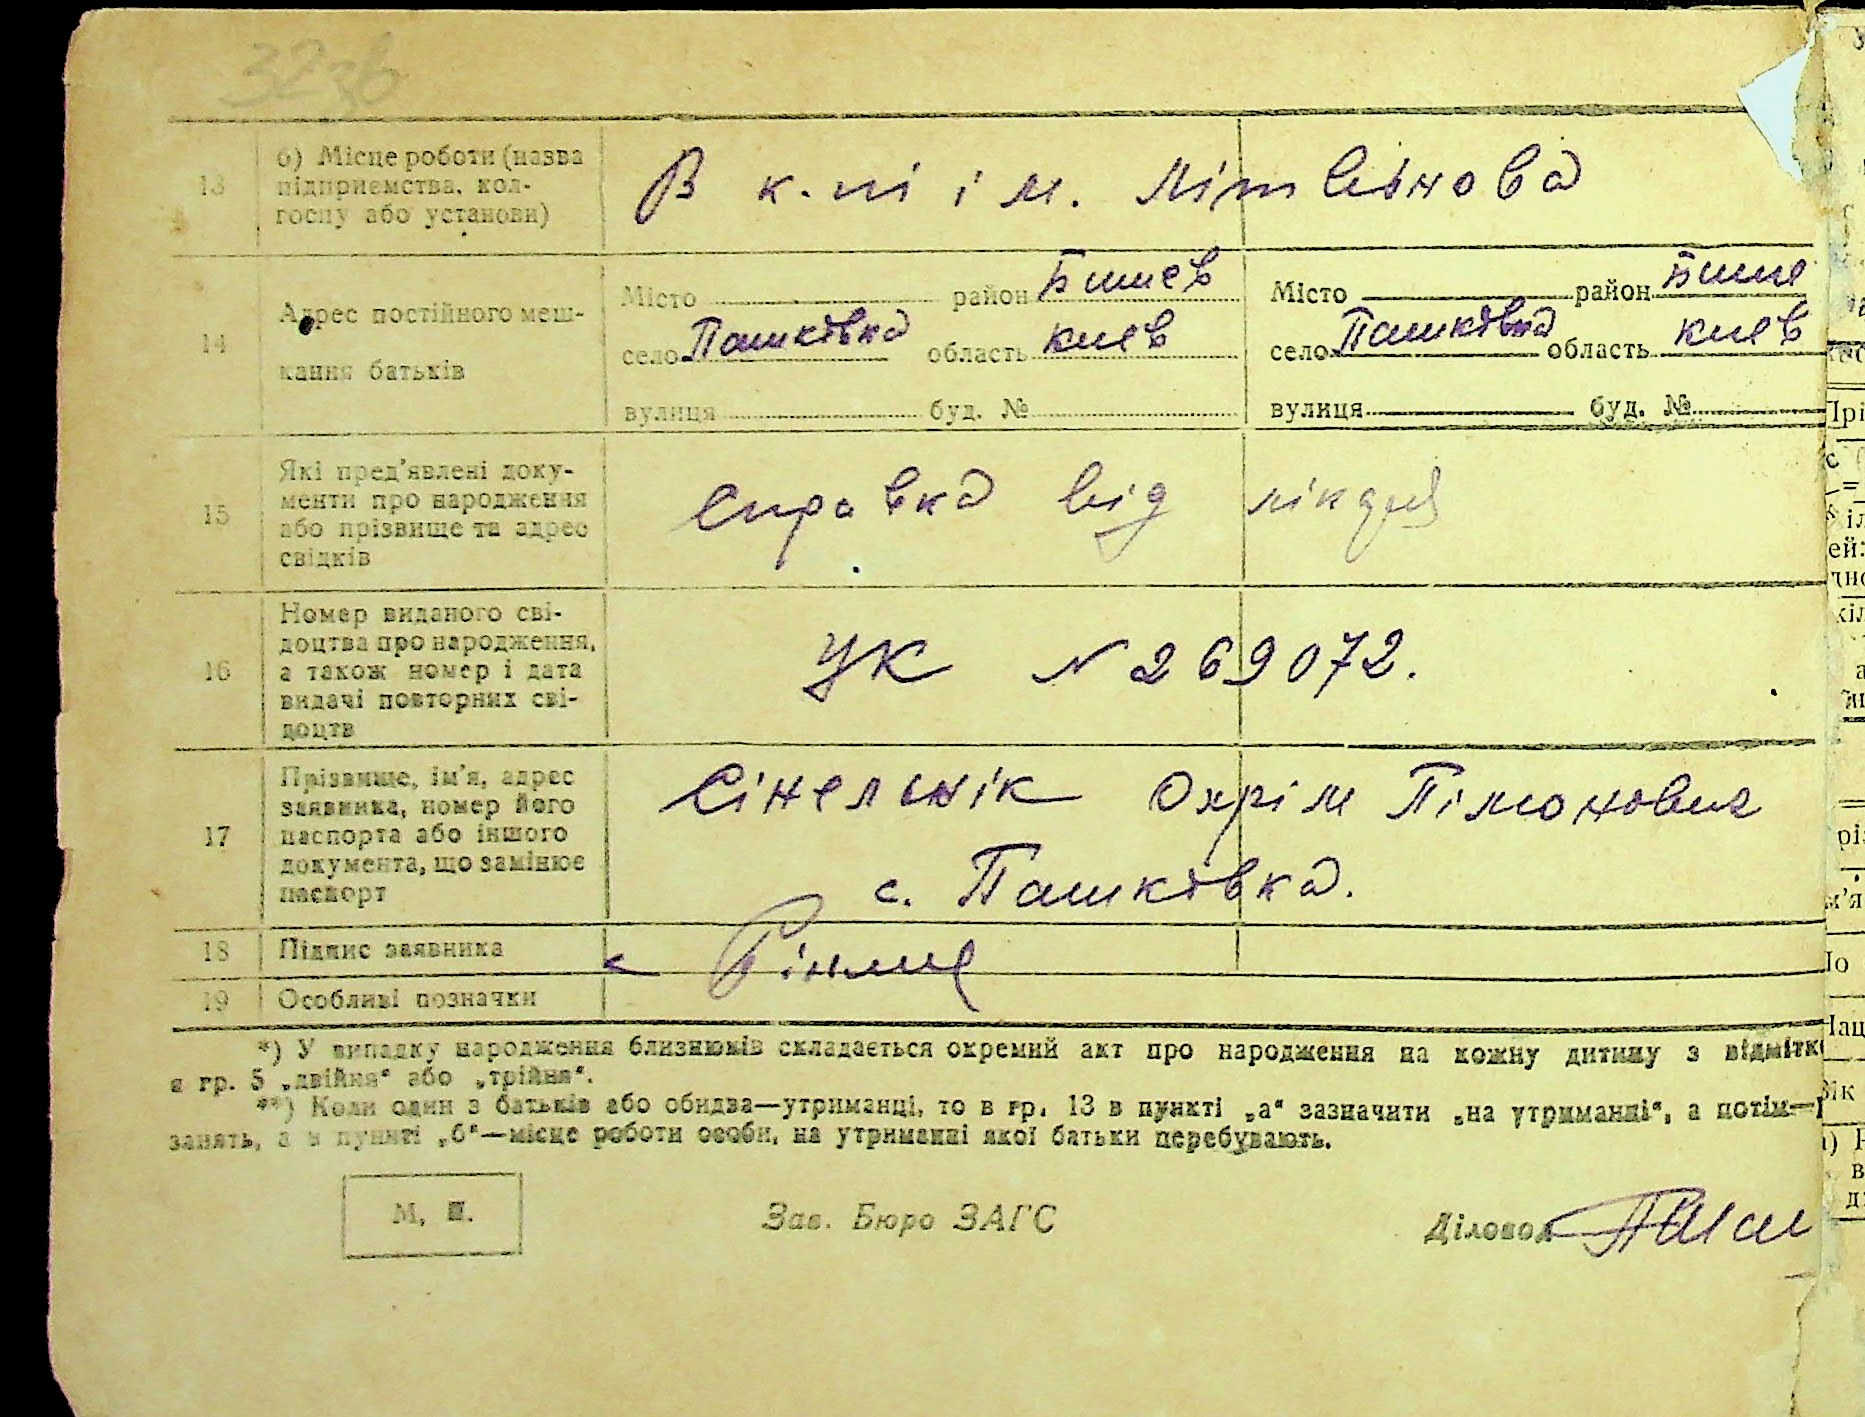 32зв
13
б) Місце роботи (назва
підприємства, кол-
госпу або установи)
В к-пі ім. Літвінова
14
Адрес постійного меш-
кання батьків
Місто район Бишев
село Пашківка область Киев
вулиця буд. №
Місто район Бише
село Пашківка область Киев
вулиця буд. №
15
Які пред'явлені доку-
менти про народження
або прізвище та адрес
свідків
Справка від лікаря
16
Номер виданого сві-
доцтва про народження,
а також номер і дата
видачі повторних сві-
доцтв
УК № 269072.
17
Прізвище, ім'я, адрес
заявника, номер його
паспорта або іншого
документа, що замінює
паспорт
Сінельнік Охрім Пімонович
с. Пашківка.
18
Підпис заявника
19
Особливі позначки
*) У випадку народження близнюків складається окремий акт про народження на кожну дитину з відмітк
в гр. 5 „двійня“ або „трійня“.
**) Коли один з батьків або обидва—утриманці, то в гр. 13 в пункті „а“ зазначити „на утриманні“, а потім—
занять, а в пункті „б“—місце роботи особи, на утриманні якої батьки перебувають.
М. П.
Зав. Бюро ЗАГС
Діловод